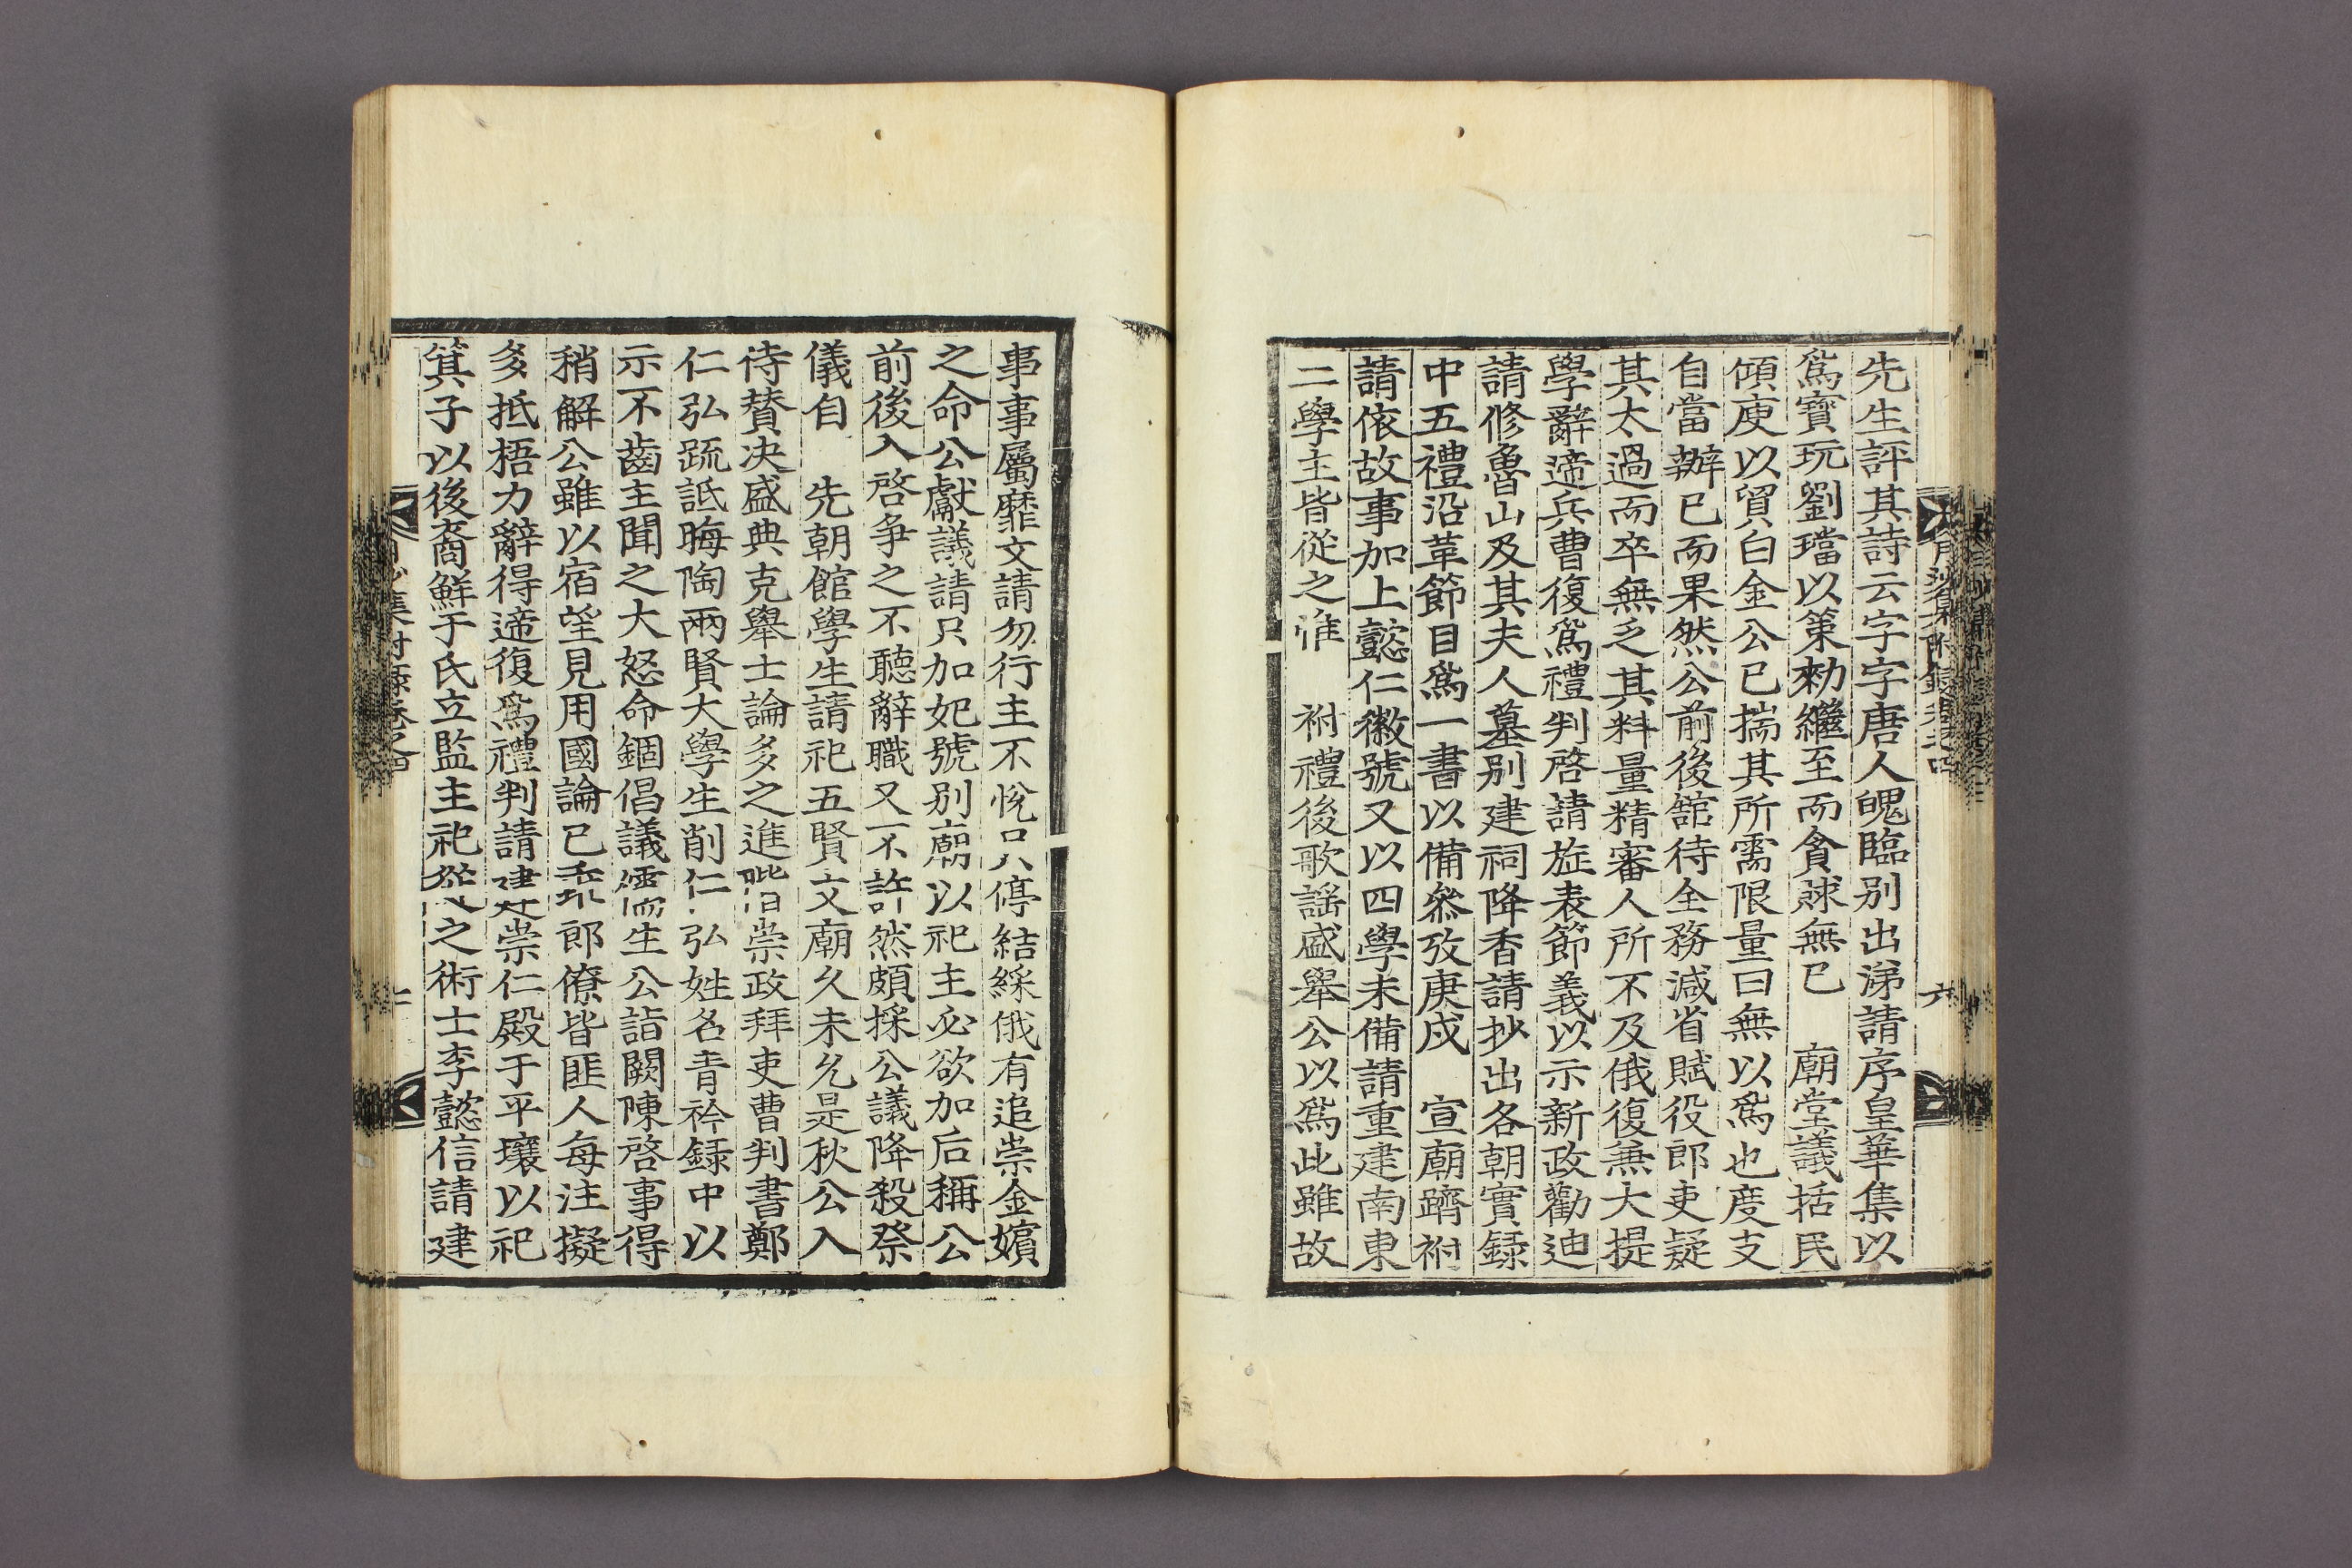 先生評其詩云字字唐人魄臨別出涕請序皇華集以
爲寶玩劉璫以策勑繼至而貪賕無已　廟堂議括民
傾庾以貿白金公已揣其所需限量曰無以爲也度支
自當辦已而果然公前後舘待全務減省賦役郎吏疑
其太過而卒無乏其料量精審人所不及俄復兼大提
學辭遞兵曹復爲禮判啓請㫌表節義以示新政勸迪
請修魯山及其夫人墓別建祠降香請抄出各朝實錄
中五禮沿革節目爲一書以備叅攷庚戌　宣廟躋祔
請依故事加上懿仁徽號又以四學未備請重建南東
二學主皆從之惟　祔禮後歌謠盛舉公以爲此雖故
六
事事屬靡文請勿行主不悅只停結綵俄有追崇金嬪
之命公獻議請只加妃號別廟以祀主必欲加后稱公
前後入啓爭之不聽辭職又不許然頗採公議降殺祭
儀自　先朝館學生請祀五賢文廟久未允是秋公入
待賛決盛典克舉士論多之進階崇政拜吏曹判書鄭
仁弘疏詆晦陶兩賢大學生削仁弘姓名青衿錄中以
示不齒主聞之大怒命錮倡議儒生公詣闕陳啓事得
稍解公雖以宿望見用國論已乖郎僚皆匪人每注擬
多抵梧力辭得遞復爲禮判請建崇仁殿于平壤以祀
箕子以後裔鮮于氏立監主祀從之術士李懿信請建